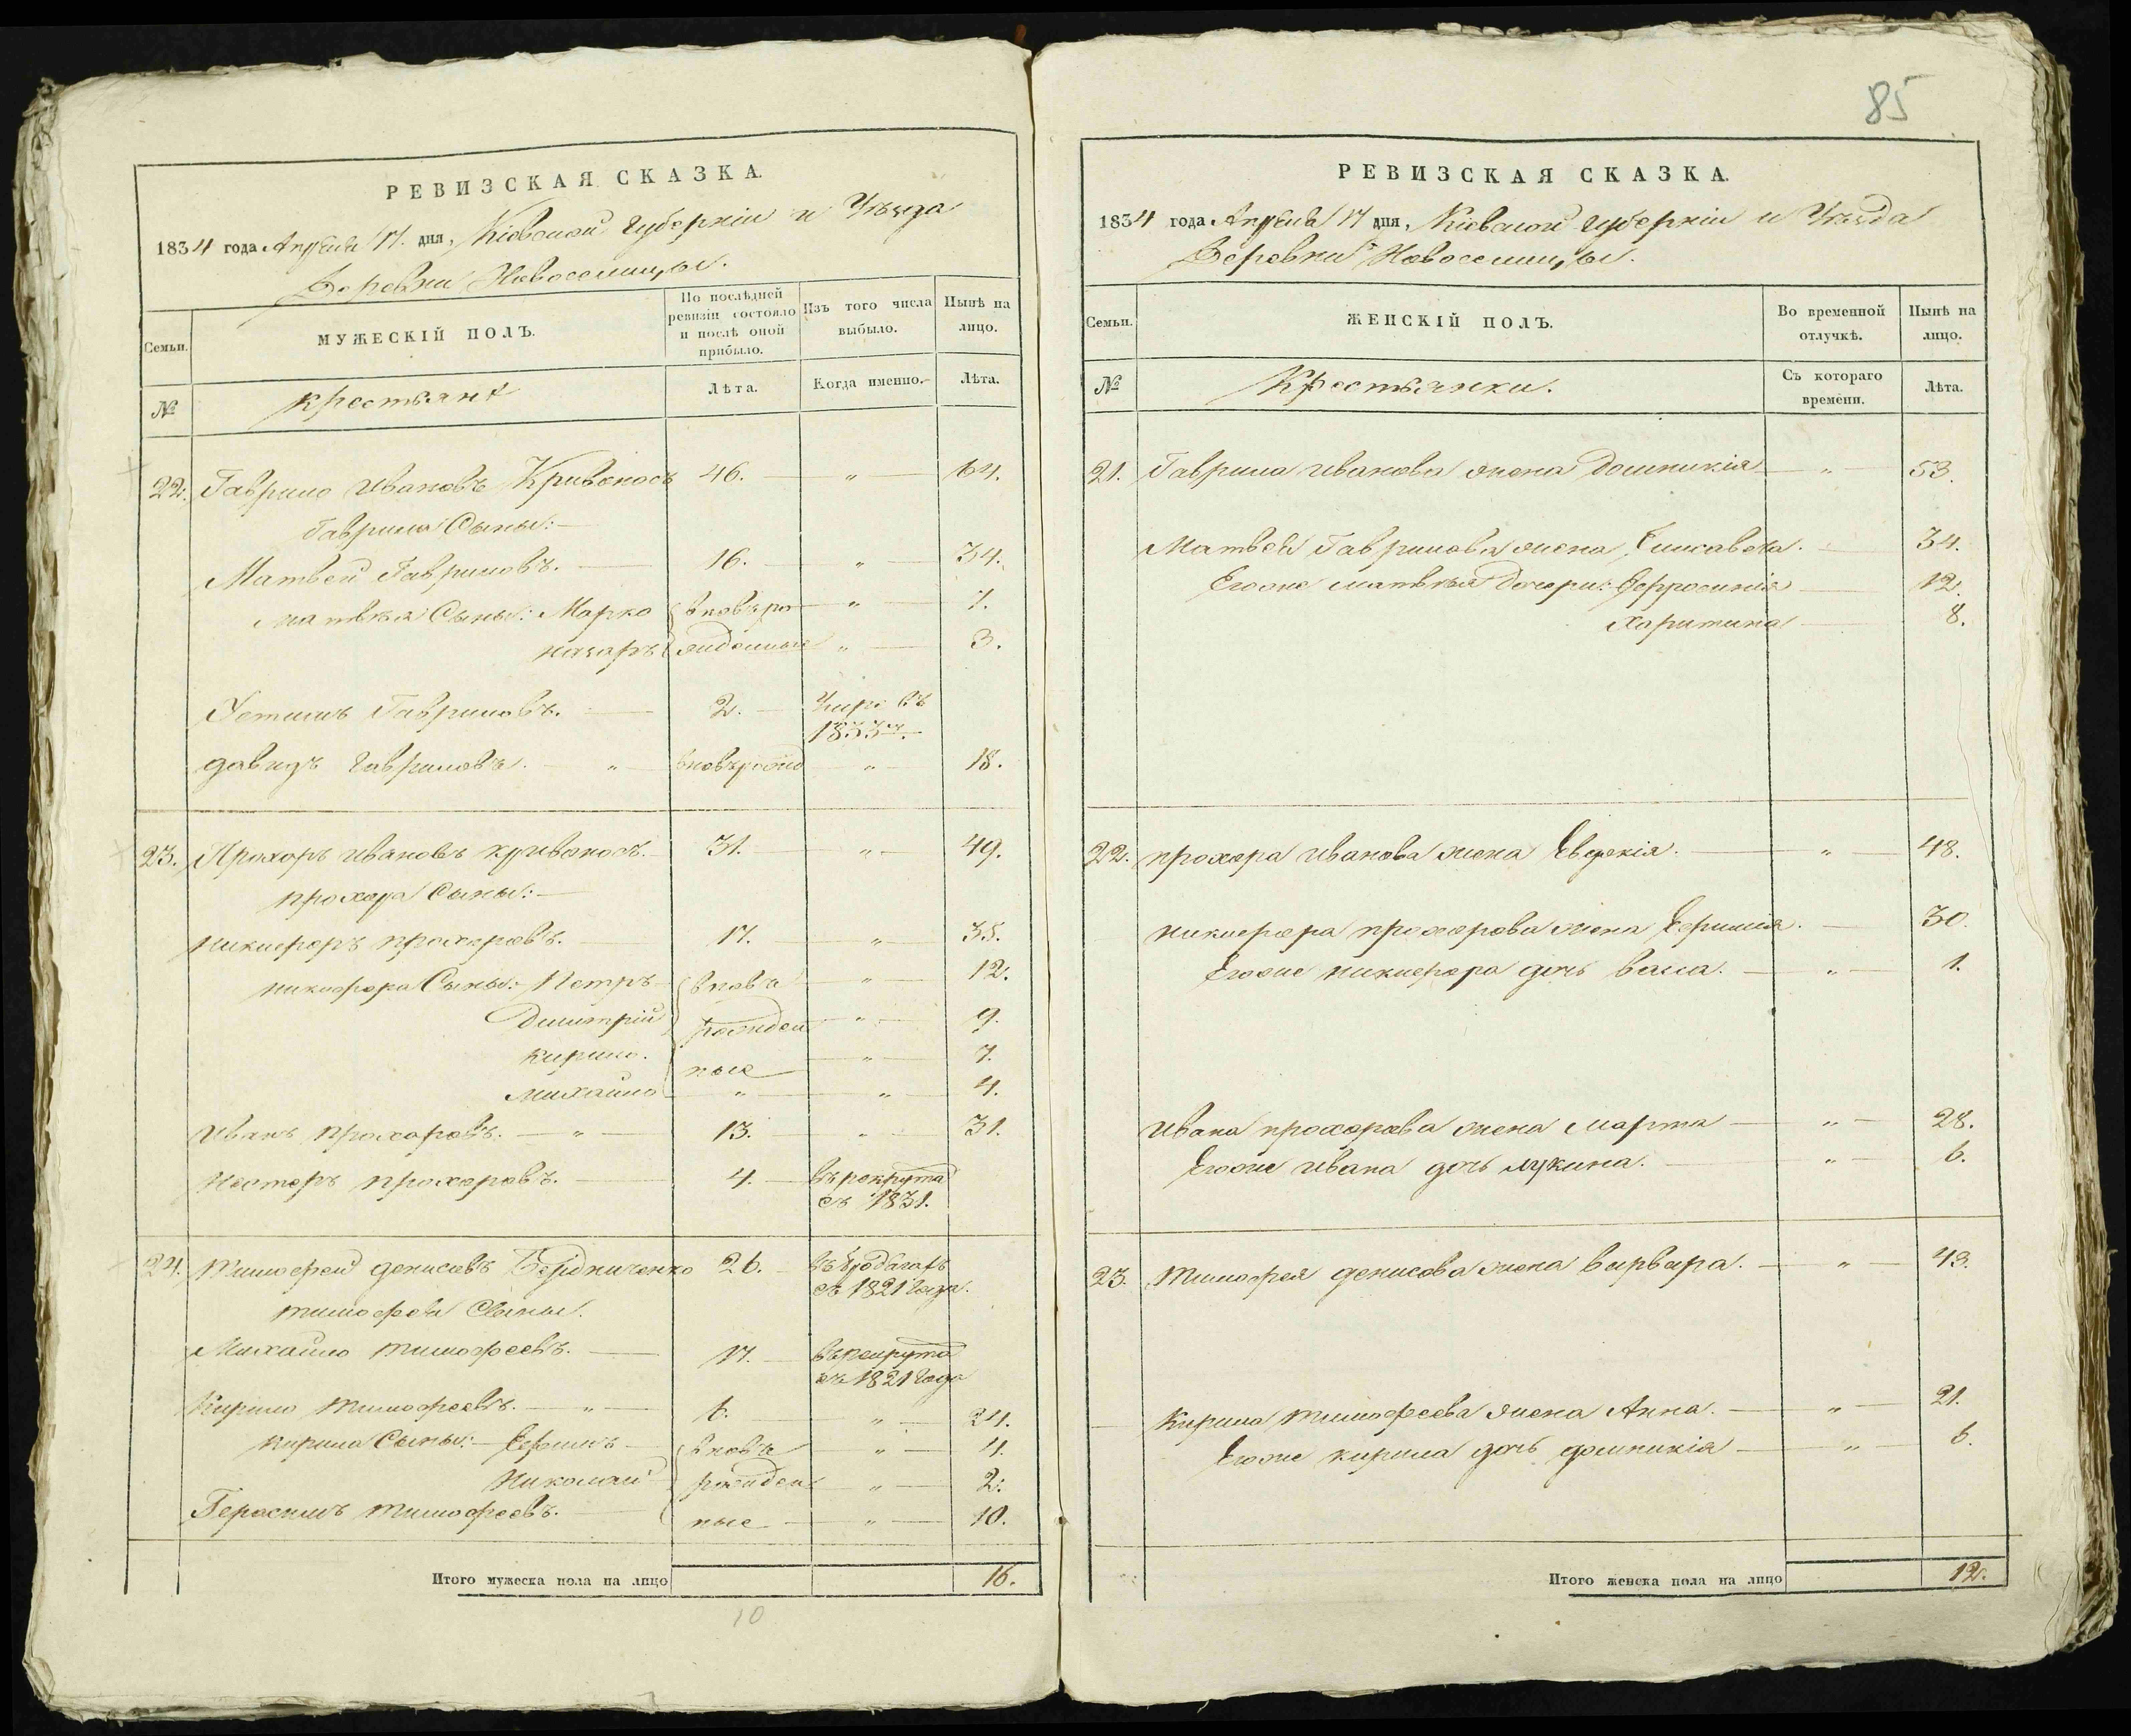 РЕВИЗСКАЯ СКАЗКА.
1834 года Апреля 17. дня, Кіевской Губерніи и Уѣзда
Деревни Новоселицы.
Семьи.
МУЖЕСКІЙ ПОЛЪ.
По послѣдней ревизіи состояло и послѣ оной прибыло.
Изъ того числа выбыло.
Нынѣ на лицо.
№
Крестьянъ
Лѣта.
Когда именно.
Лѣта.
22. Гаврило Ивановъ Кривоносъ 46. — „ — 64.
Гаврила Сыны:
Матвей Гавриловъ. 16. „ 34.
Матвѣя Сыны: Марко вновь ро „ 7.
Назаръ жденные „ 3.
Устимъ Гавриловъ. 2. Умре въ
1833 г.
Давидъ Гавриловъ. „ вновьрожд „ 18.
23. Прохоръ Ивановъ Кривоносъ. 31. „ 49.
Прохора Сыны:
Никифоръ Прохоровъ. 17. „ 35.
Никифора Сыны: Петръ вновь „ 12.
Димитрій рожден „ 9.
Кирило. ные „ 7.
Михайло „ „ 4.
Иванъ Прохоровъ. „ 13. „ 31.
Несторъ Прохоровъ. 4. въ рекрута
съ 1831.
24. Тимофей Денисовъ Бердниченко 26. въ
съ 1821 года.
Тимофея Сыны.
Михайло Тимофеевъ. 17. въ рекрута
съ 1821 года
Кирило Тимофеевъ. „ 6. „ 24.
Кирила Сыны: Ефимъ вновь „ 4.
Николай рожден „ 2.
Герасимъ Тимофеевъ. ные „ 10.
Итого мужеска пола на лицо 16.
10
85
РЕВИЗСКАЯ СКАЗКА.
1834 года Апреля 17 дня, Кіевской Губерніи и Уѣзда
Деревни Новоселицы.
Семьи.
ЖЕНСКІЙ ПОЛЪ.
Во временной отлучкѣ.
Нынѣ на лицо.
№
Крестьянки.
Съ котораго времени.
Лѣта.
21. Гаврила Иванова жена Домникія „ 53.
Матвея Гаврилова жена Елисавета. 34.
Егоже Матвѣя Дочери: Ефросинія 12.
Харитина 8.
22. Прохора Иванова жена Евдокія. „ 48.
Никифора Прохорова жена Ефимія. 30.
Егоже Никифора дочь Васса. „ 1.
Ивана Прохорова жена Марта „ 28.
Егоже Ивана дочь Лукина. „ 6.
23. Тимофея Денисова жена Варвара. „ 43.
Кирила Тимофеева жена Анна. „ 21.
Егоже Кирила дочь Домникія „ 6.
Итого женска пола на лицо 12.